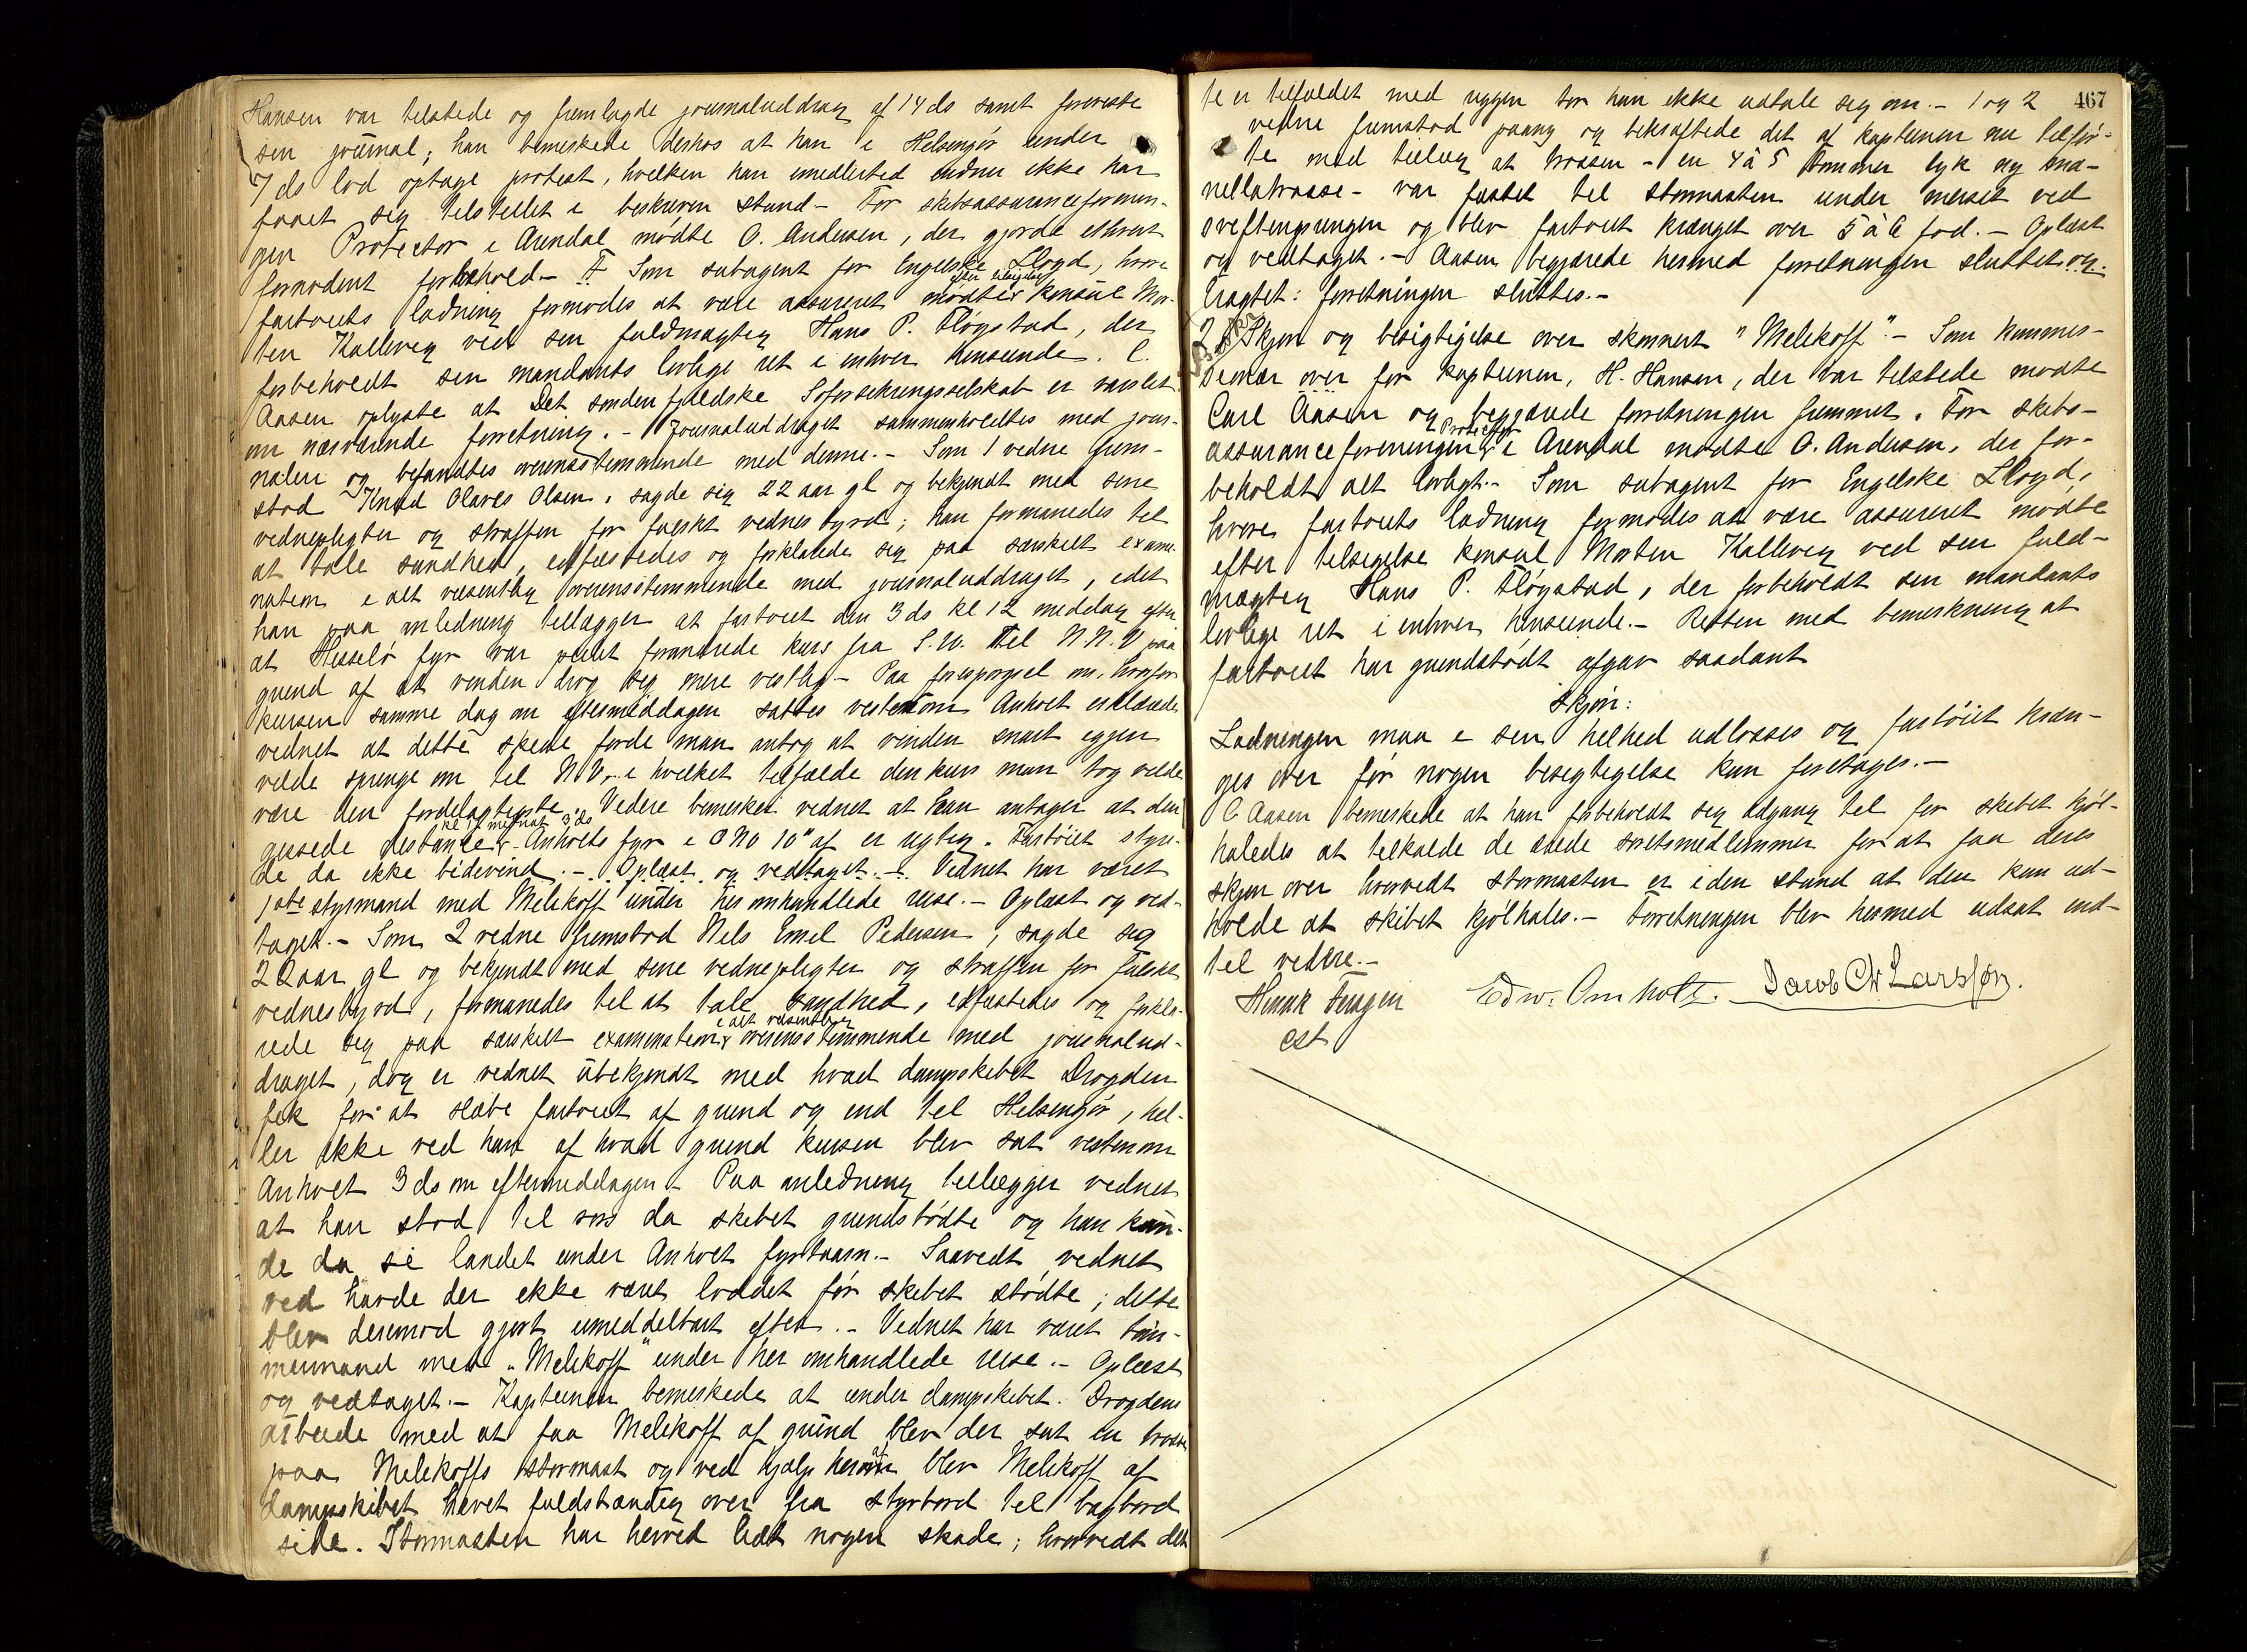 Hansen var tilstede og fremlagde journaluddrag af 14 ds samt foreviste
sin journal; han bemerkede derhos at han i Helsingør under
7 ds lod optage protest, hvilken han imedlertid endnu ikke har
faaet sig tilstillet i beskreven stand – For skibsassuranceforenin-
gen Protector i Arendal mødte O. Andersen, der gjorde ethvert
fornødent forbehold – Som subagent for Engelske Lloyd, hvori
fartøiets ladning formodes at være assureret mødte efter tilsigelse konsul Mor-
ten Kallevig ved sin fuldmægtig Hans P. Fløystad, der
forbeholdt sin mandants lovlige ret i enhver henseende. C.
Aasen oplyste at Det søndenfjeldske Søforsikringsselskab er varslet
om nærværende forretning. – Journaluddraget sammenholdtes med jour-
nalen og befandtes overensstemmende med denne. – Som 1 vidne frem-
stod Knud Olaves Olsen, sagde sig 22 aar gl og bekjendt med sine
vidnepligter og straffen for falskt vidnesbyrd; han formanedes til
at tale sandhed, edfæstedes og forklarede sig paa særskilt exami-
nation i alt væsentlig overensstemmende med journaluddraget, idet
han paa anledning tillægger at fartøiet den 3 ds kl 12 middag efter
at Hesselø fyr var peilet forandrede kurs fra S.W. til N.N.V paa
grund af at vinden drog sig mere vestlig – Paa forespørgsel om, hvorfor
kursen samme dag om eftermiddagen sattes vestenom Anholt erklærede
vidnet at dette skede fordi man antog at vinden snart igjen
vilde springe om til N.V., i hvilket tilfælde den kurs man tog vilde
være den fordelagtigste. Videre bemerket vidnet at han antager at den
gissede distance kl 12 midnat 3 ds Anholts fyr i ONO 10" af er rigtig. Fartøiet styre-
de da ikke bidevind. – Oplæst og vedtaget. – Vidnet har været
1ste styrmand med Melikoff under her omhandlede reise. – Oplæst og ved-
taget. – Som 2 vidne fremstod Nils Emil Pedersen, sagde sig
22 aar gl og bekjendt med sine vidnepligter og straffen for falskt
vidnesbyrd, formanedes til at tale sandhed, edfæstedes og forkla-
rede sig paa særskilt examination i alt væsentlig overensstemmende med journalud-
draget, dog er vidnet ubekjendt med hvad dampskibet Drogden
fik for at slæbe fartøiet af grund og ind til Helsingør, hel-
ler ikke ved han af hvad grund kursen blev sat vestenom
Anholt 3 ds om eftermiddagen – Paa anledning tillægger vidnet
at han stod til rors da skibet grundstødte og han kun-
de da se landet under Anholt fyrtaarn. – Saavidt vidnet
ved havde der ikke været loddet før skibet stødte; dette
blev derimod gjort umiddelbart efter. – Vidnet har været tøm-
mermand med "Melikoff" under her omhandlede reise. – Oplæst
og vedtaget. – Kapteinen bemerkede at under dampskibet Drogdens
arbeide med at faa Melikoff af grund blev der sat en trosse
paa Melikoffs stormast og ved hjælp heraf blev Melikoff af
dampskibet hevet fuldstændig over fra styrbord til bagbord
side. Stormasten har herved lidt nogen skade; hvorvidt det-
467
te er tilfældet med riggen tør han ikke udtale sig om. – 1 og 2
vidne fremstod paany og bekræftede det af kapteinen nu tilfør-
te med tillæg at trossen – en 4 à 5 tommer tyk ny ma-
nillatrosse – var fæstet til stormasten under merset ved
sveftingningen og blev fartøiet krænget over 5 à 6 fod. – Oplæst
og vedtaget. – Aasen begjærede hermed forretningen sluttet og
tragtet: forretningen sluttes. –
2 Skjøn og besigtigelse over skonnert "Melikoff". – Som kommis-
sionær over for kapteinen, H. Hansen, der var tilstede mødte
Carl Aasen og begjærede forretningen fremmet. For skibs-
assuranceforeningen Protector i Arendal mødte O. Andersen, der for-
beholdt alt lovligt. – Som subagent for Engelske Lloyd,
hvori fartøiets ladning formodes at være assureret mødte
efter tilsigelse konsul Morten Kallevig ved sin fuld-
mægtig Hans P. Fløystad, der forbeholdt sin mandants
lovlige ret i enhver henseende. – Retten med bemerkning at
fartøiet har grundstødt afgav saadant
skjøn:
Ladningen maa i sin helhed udlosses og fartøiet kræn-
ges over før nogen besigtigelse kan foretages. –
C Aasen bemerkede at han forbeholdt sig adgang til før skibet kjøl-
haledes at tilkalde de ærede søretsmedlemmer for at faa deres
skjøn over hvorvidt stormasten er i den stand at den kan ud-
holde at skibet kjølhales. – Forretningen blev hermed udsat ind-
til videre. –
Edw. Omholt. Jacob Chr Larssøn.
cst